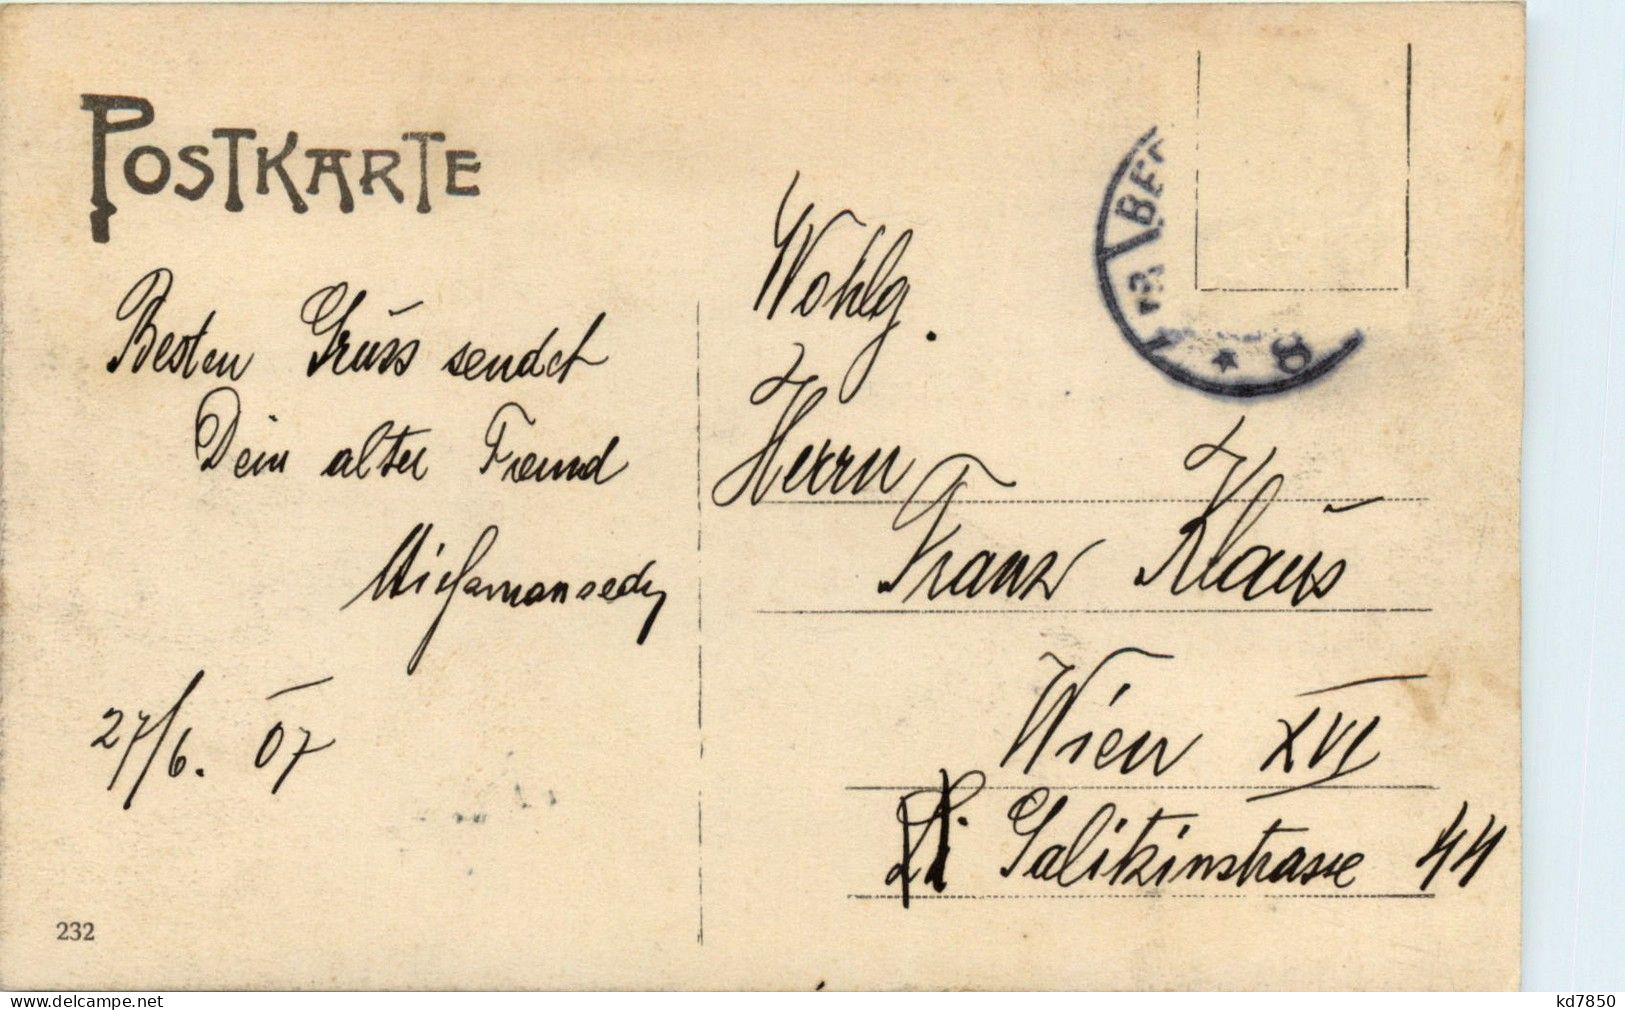 POSTKARTE
Besten Grüss sendet
Dein alter Freund
27/6. 07
232
Wohlg.
Herrn
Franz Klaüs
Wien XVI
Galitzinstrasse 44
BER
8
www.delcampe.net
kd7850